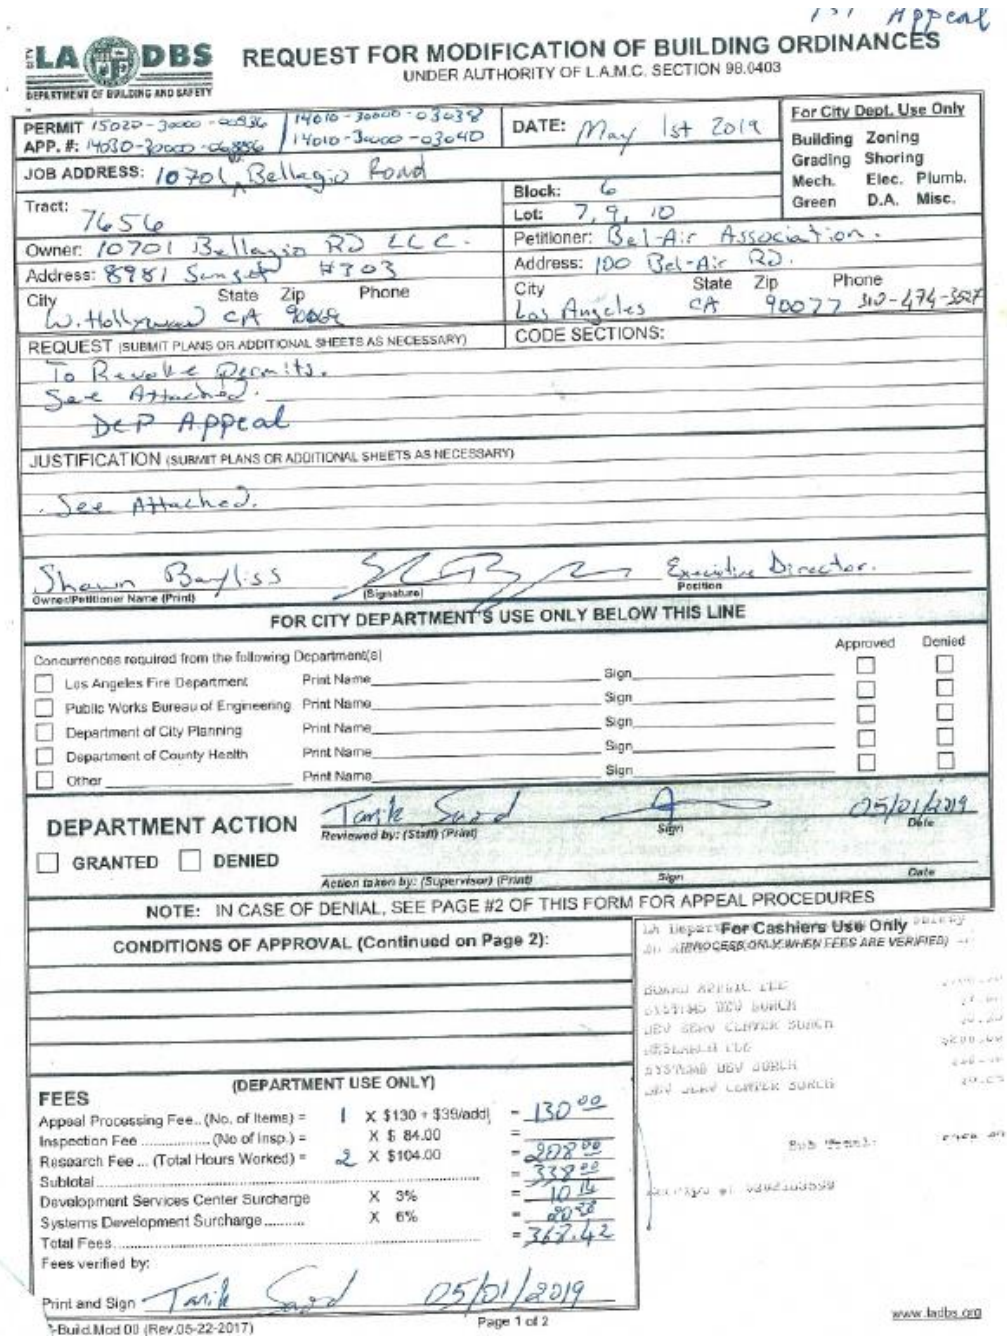 1st Appeal
CITY LA DBS
DEPARTMENT OF BUILDING AND SAFETY
REQUEST FOR MODIFICATION OF BUILDING ORDINANCES
UNDER AUTHORITY OF L.A.M.C. SECTION 98.0403
PERMIT 15020-30000-00936 14010-30000-03038
APP. #: 14030-30000-06856 14010-30000-03040
DATE: May 1st 2019
For City Dept. Use Only
Building Zoning
Grading Shoring
Mech. Elec. Plumb.
Green D.A. Misc.
JOB ADDRESS: 10701 W. Bellagio Road
Tract: 7656
Block: 6
Lot: 7, 9, 10
Owner: 10701 Bellagio RD LLC.
Petitioner: Bel-Air Association.
Address: 8981 Sunset #303
Address: 100 Bel-Air RD.
City State Zip Phone
W. Hollywood CA 90069
City State Zip Phone
Los Angeles CA 90077 310-474-3527
REQUEST (SUBMIT PLANS OR ADDITIONAL SHEETS AS NECESSARY)
CODE SECTIONS:
To Revoke Permits.
See Attached.
DCP Appeal
JUSTIFICATION (SUBMIT PLANS OR ADDITIONAL SHEETS AS NECESSARY)
See Attached.
Shawn Bayliss Executive Director.
Owner/Petitioner Name (Print) (Signature) Position
FOR CITY DEPARTMENT'S USE ONLY BELOW THIS LINE
Concurrences required from the following Department(s) Approved Denied
Los Angeles Fire Department Print Name Sign
Public Works Bureau of Engineering Print Name Sign
Department of City Planning Print Name Sign
Department of County Health Print Name Sign
Other Print Name Sign
DEPARTMENT ACTION
Tarik Saad 05/01/2019
Reviewed by: (Staff) (Print) Sign Date
GRANTED DENIED
Action taken by: (Supervisor) (Print) Sign Date
NOTE: IN CASE OF DENIAL, SEE PAGE #2 OF THIS FORM FOR APPEAL PROCEDURES
CONDITIONS OF APPROVAL (Continued on Page 2):
For Cashiers Use Only
(PROCESS ONLY WHEN FEES ARE VERIFIED)
BOARD APPEAL FEE
SYSTEMS DEV SURCH
DEV SERV CENTER SURCH
RESEARCH FEE
SYSTEMS DEV SURCH
DEV SERV CENTER SURCH
Sub Total:
FEES (DEPARTMENT USE ONLY)
Appeal Processing Fee.. (No. of Items) = 1 X $130 + $39/addl = 130.00
Inspection Fee .............(No of Insp.) = X $ 84.00 =
Research Fee ... (Total Hours Worked) = 2 X $104.00 = 208.00
Subtotal = 338.00
Development Services Center Surcharge X 3% = 10.14
Systems Development Surcharge X 6% = 20.28
Total Fees = 368.42
Fees verified by:
Print and Sign Tarik Saad 05/01/2019
-Build.Mod 00 (Rev.05-22-2017)
Page 1 of 2
www.ladbs.org